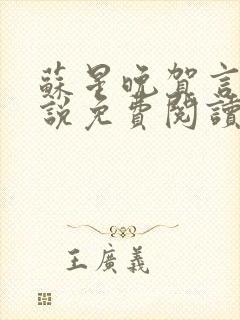 蘇星晚賀言
說免費閱讀
王廣義